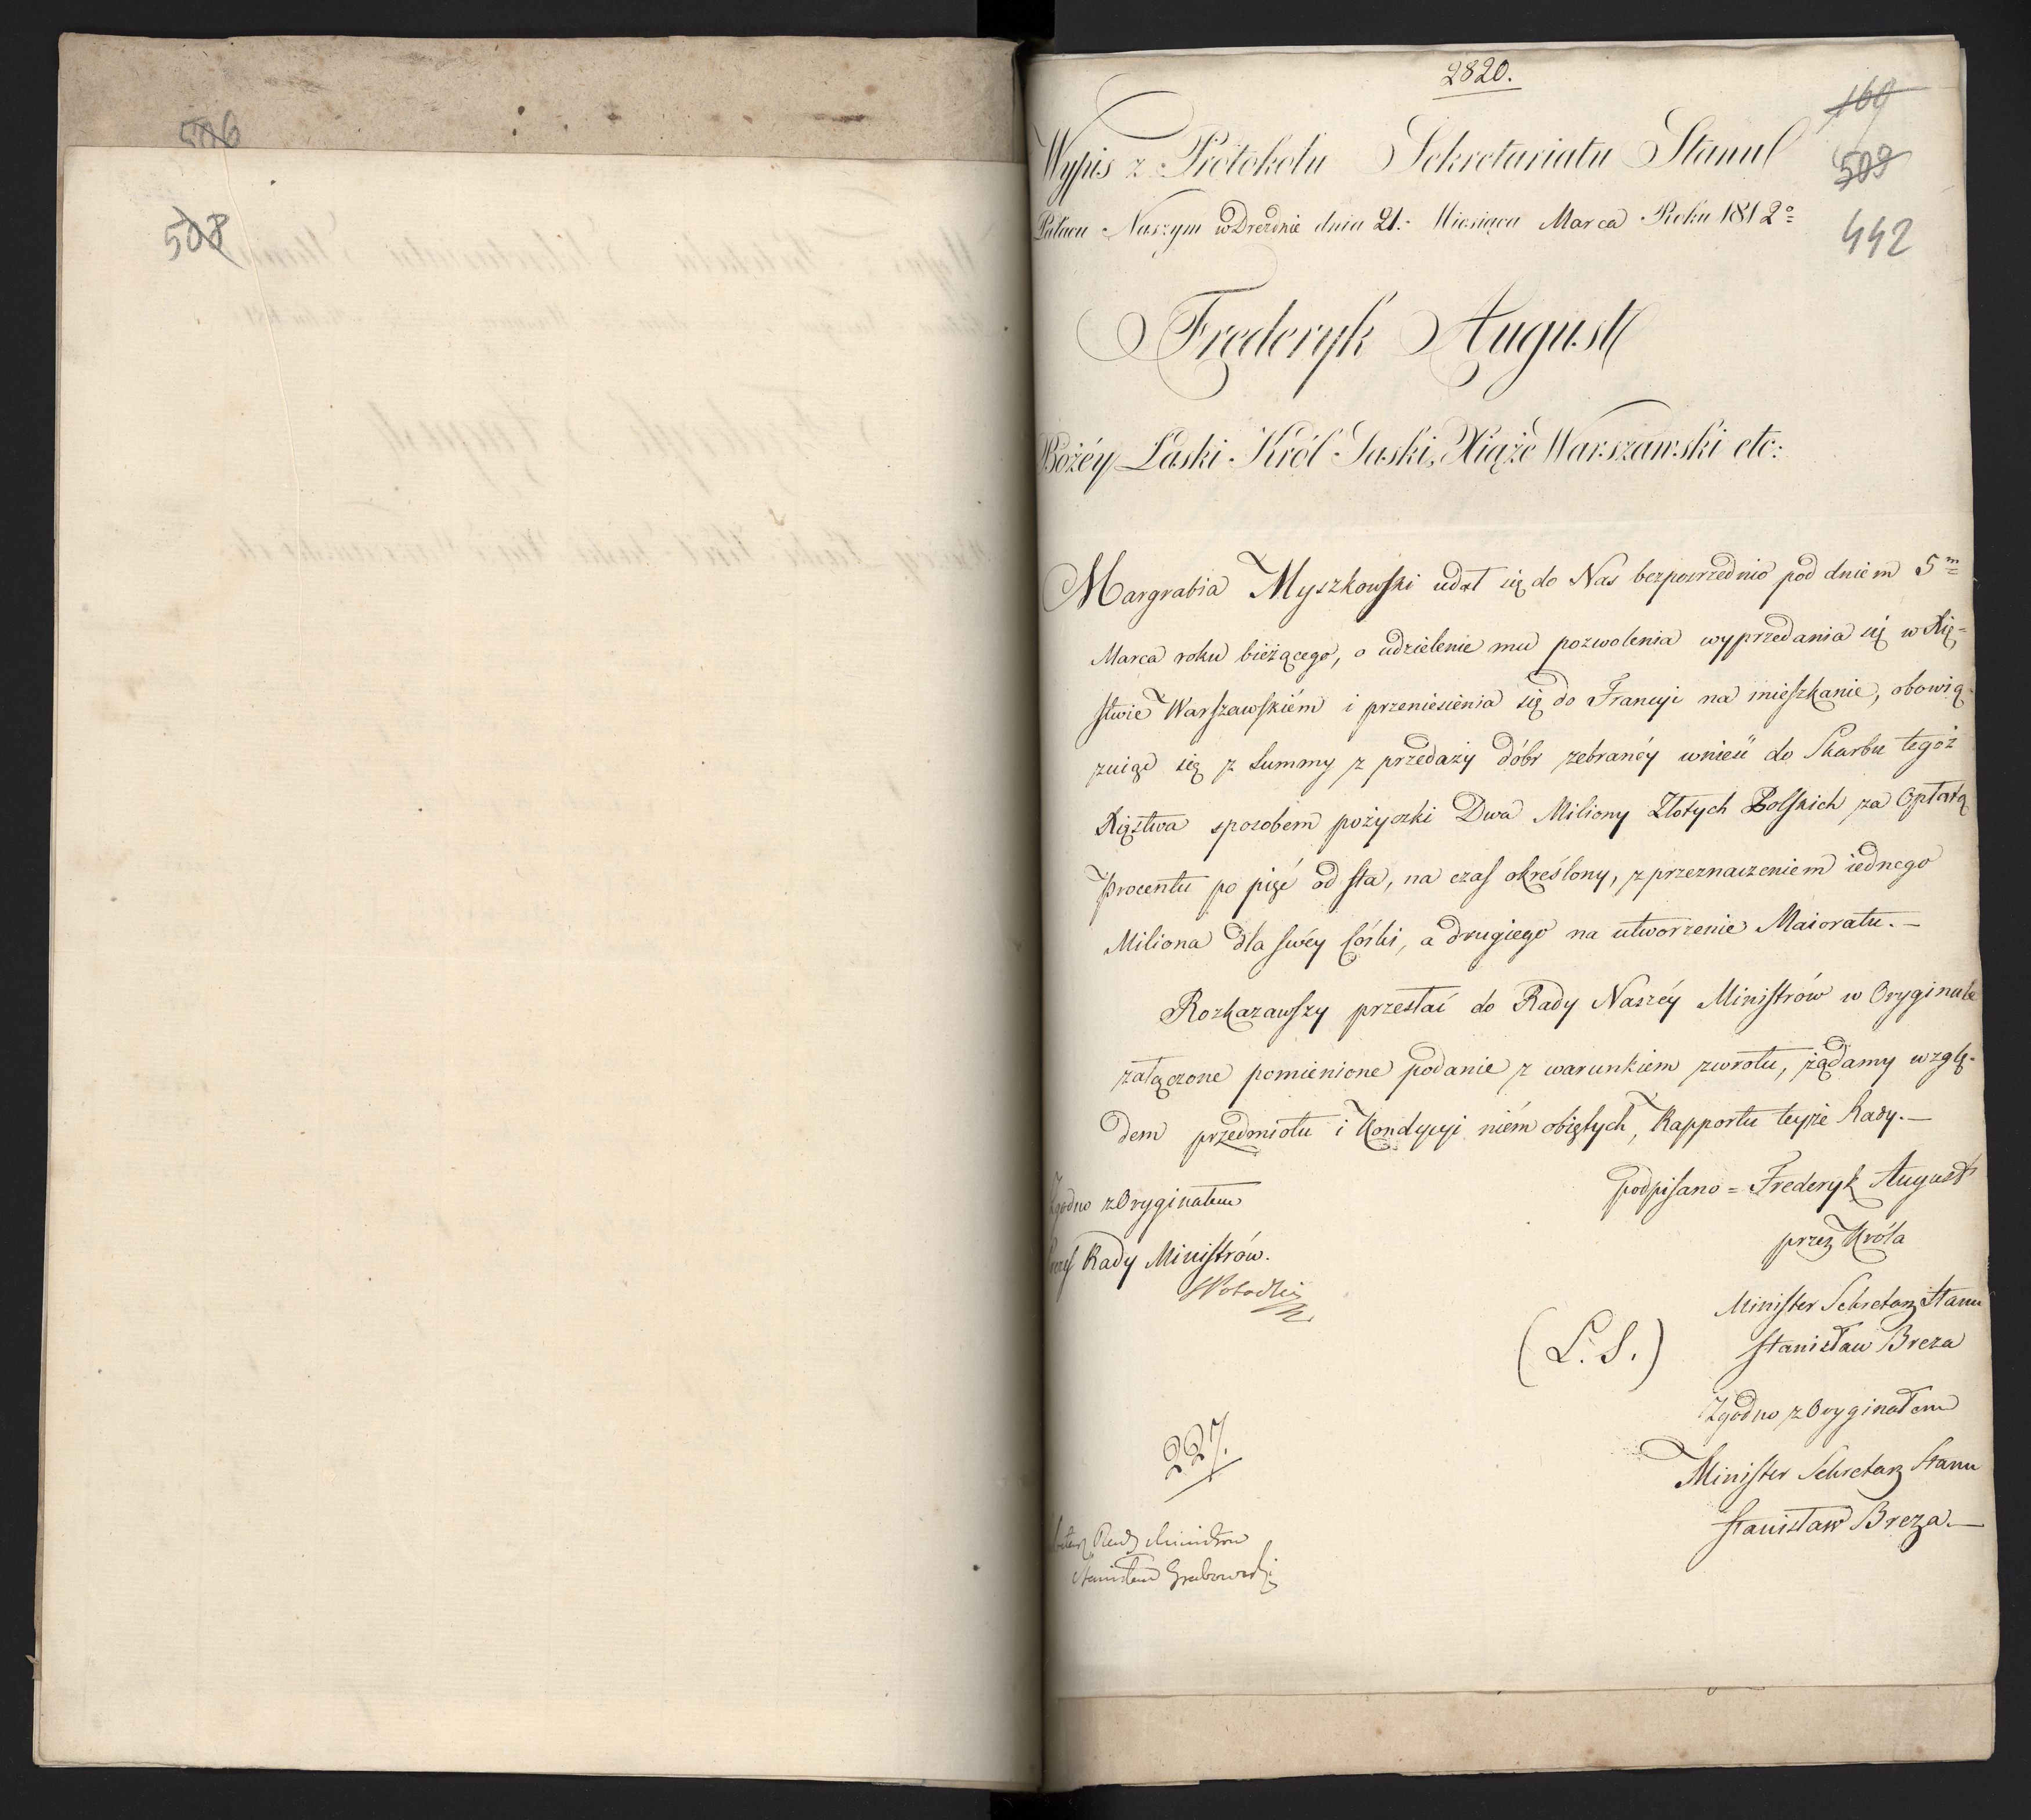 506
508
2820.
169
509
442
Wypis z Protokołu Sekretariatu Stanu
Pałacu Naszym w Dreźnie dnia 21. Miesiąca Marca Roku 1812º
Frederyk August
Bożéy Łaski Król Saski, Xiąże Warszawski etc:
Margrabia Myszkowski udał się do Nas bezpośrednio pod dniem 5m
Marca roku bieżącego, o udzielenie mu pozwolenia wyprzedania się w Xię-
stwie Warszawskiém i przeniesienia się do Francyi na mieszkanie, obowią-
zuiąc się z Summy z przedaży dóbr zebranéy wnieść do Skarbu tegoż
Xięstwa sposobem pożyczki Dwa Miliony Złotych Polskich za Opłatą
Procentu po pięć od sta, na czas określony, z przeznaczeniem iednego
Miliona dla swéy Córki, a drugiego na utworzenie Maioratu. —
Rozkazawszy przesłać do Rady Naszéy Ministrów w Oryginale
załączone pomienione podanie z warunkiem zwrotu, żądamy wzglę-
dem przedmiotu i Kondycyi niém obiętych, Rapportu teyże Rady. —
podpisano = Frederyk August
przez Króla
Minister Sekretarz Stanu
Stanisław Breza
(L. S.)
Zgodno z Oryginałem
Minister Sekretarz Stanu
Stanisław Breza. —
Zgodno z Oryginałem
Prezes Rady Ministrów.
227.
Sekretarz Rady Ministrów
Stanisław Grabowski